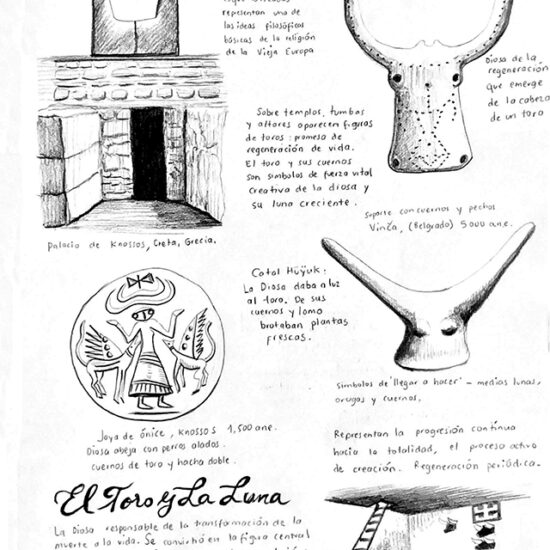 representan uno de
las ideas filosóficas
básicas de la religión
de la Vieja Europa
Diosa de la
regeneración
que emerge
de la cabeza
de un toro
Sobre templos, tumbas
y altares aparecen figuras
de toros: promesa de
regeneración de vida.
El toro y sus cuernos
son símbolos de fuerza vital
creativa de la diosa y
su luna creciente.
Palacio de Knossos, Creta, Grecia.
soporte con cuernos y pechos
Vinča, (Belgrado) 5000 a.n.e.
Catal Hüyuk:
La Diosa daba a luz
al toro. De sus
cuernos y lomo
brotaban plantas
frescas.
Joya de ónice, Knossos 1,500 ane.
Diosa abeja con perros alados.
cuernos de toro y hacha doble.
Símbolos de 'llegar a hacer' - medias lunas,
orugas y cuernos.
Representan la progresión continua
hacia la totalidad, el proceso activo
de creación. Regeneración periódica.
El Toro y La Luna
La Diosa responsable de la transformación de la
muerte a la vida. Se convirtió en la figura central